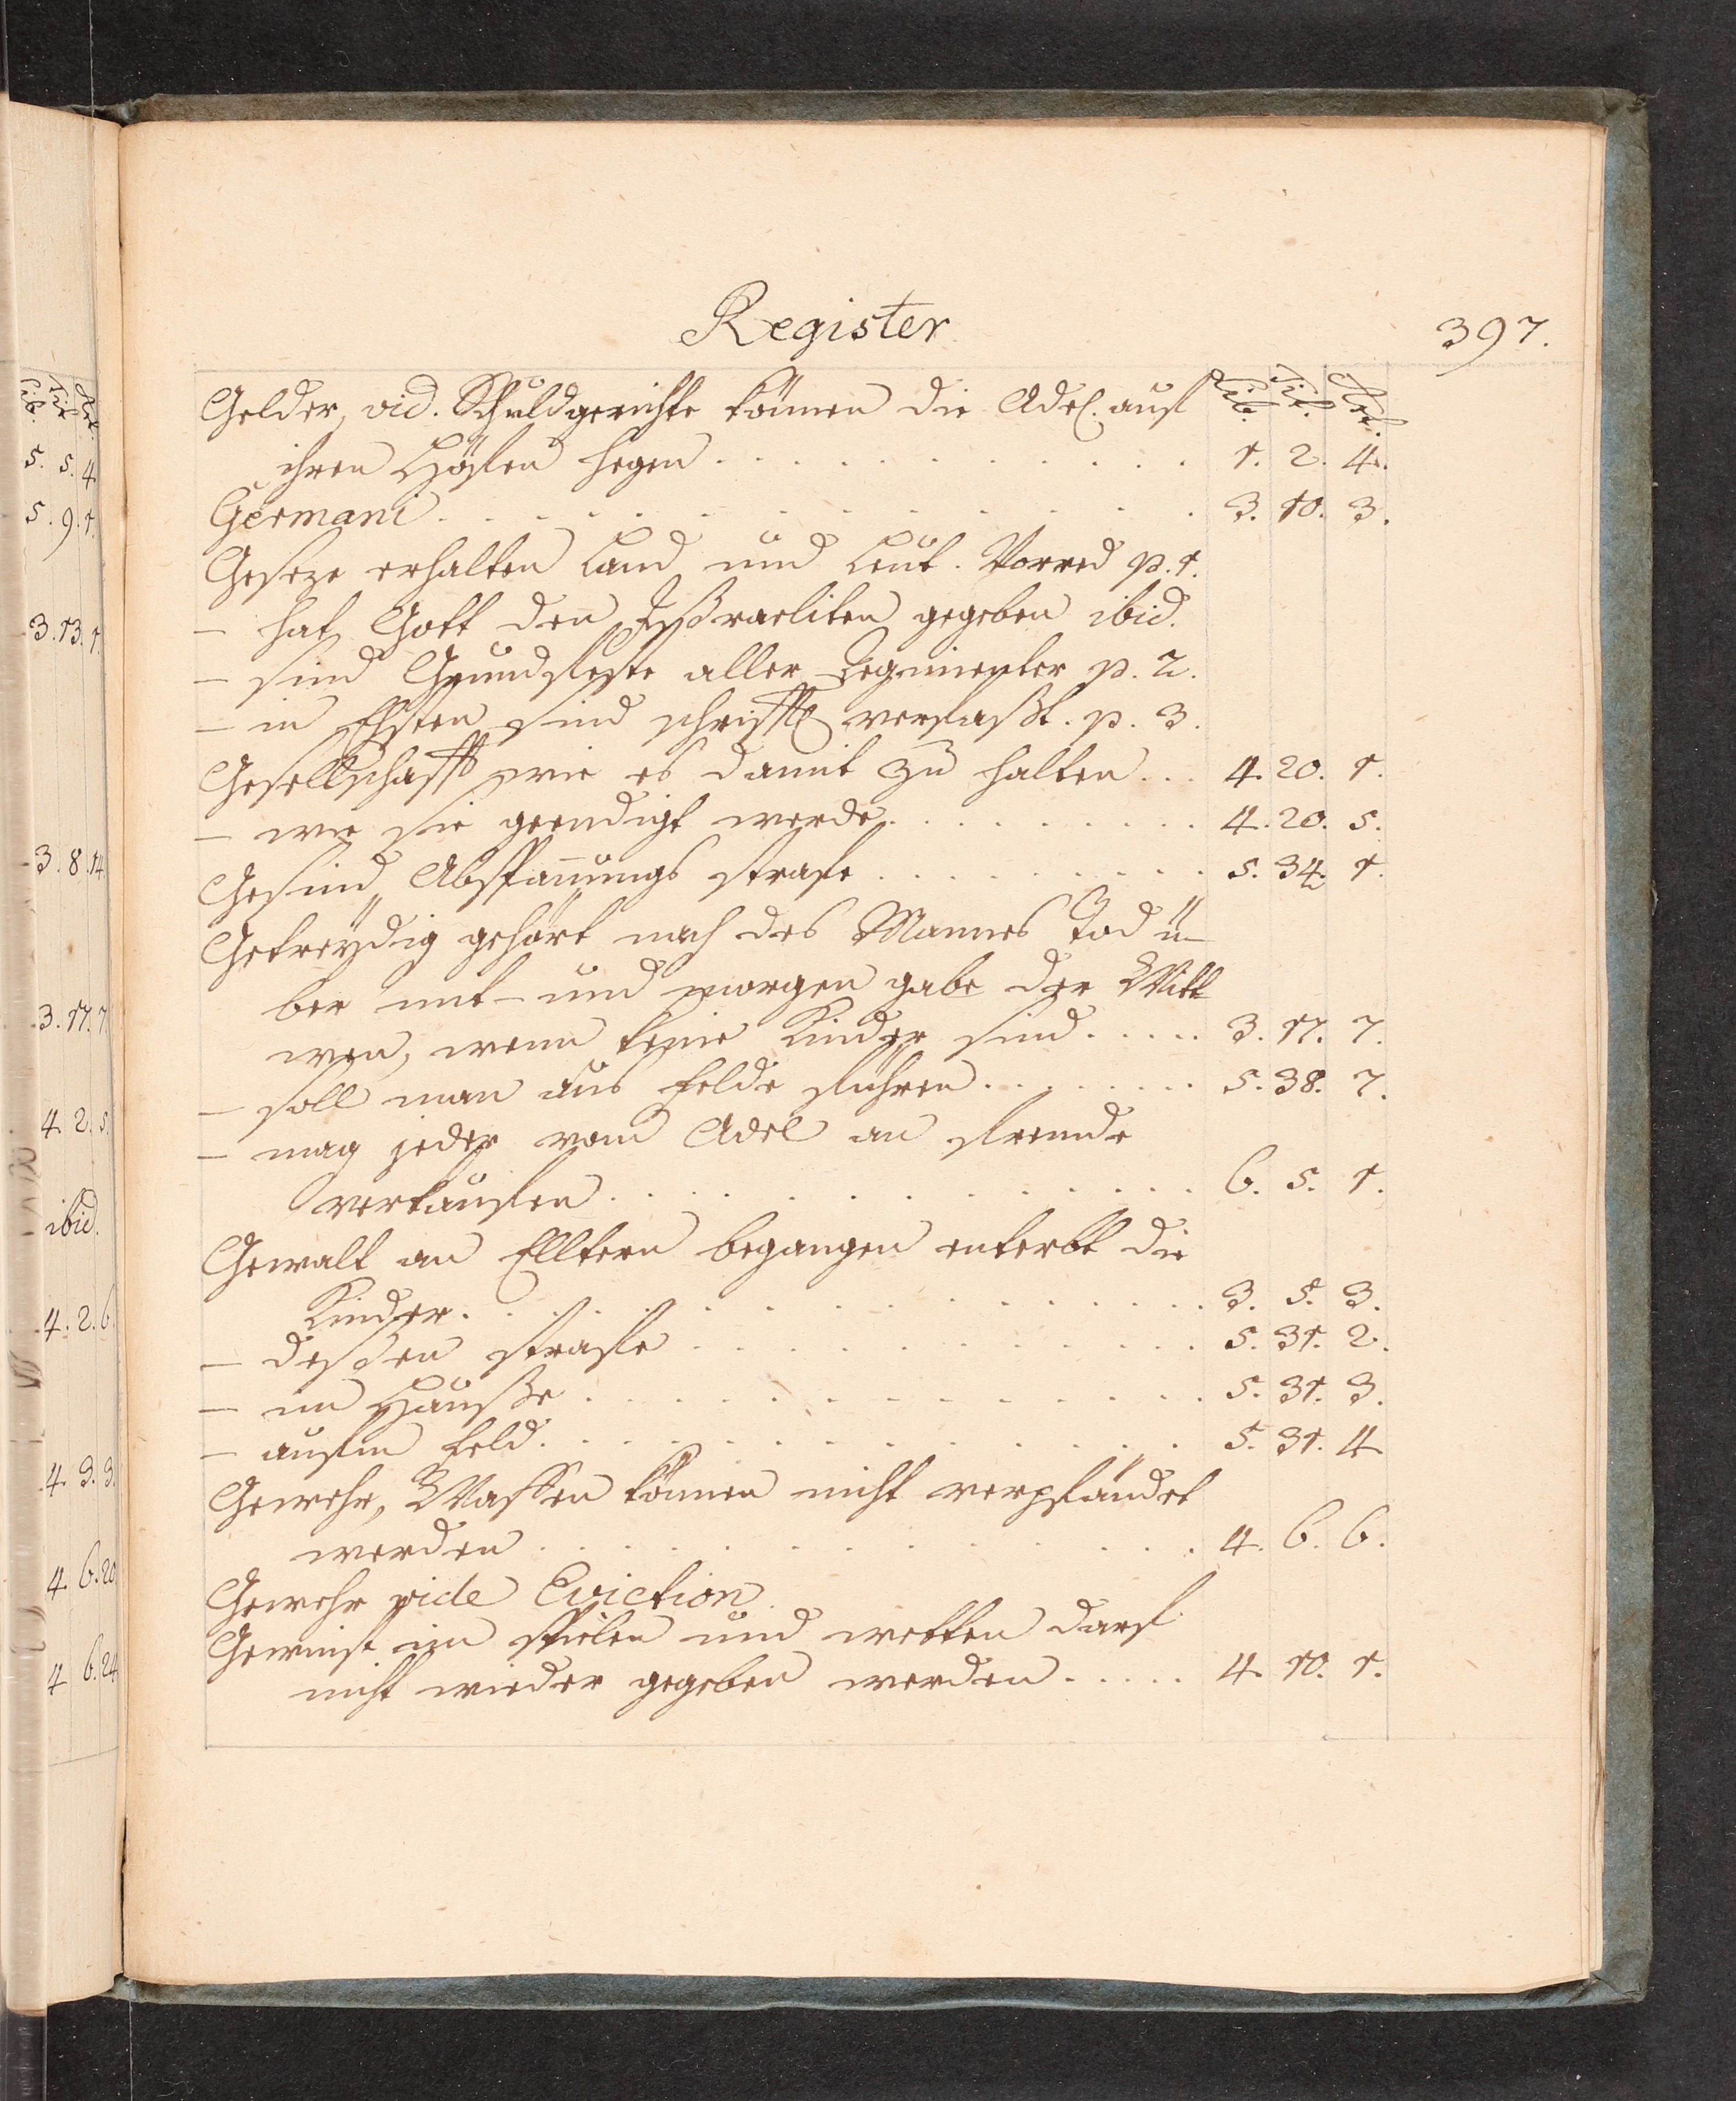 Register
397.
Lib. Tit. Art.
Gelder, vid. Schuldgerichte können die Adel. auf
ihren Höfen hegen . . . . . . . . . . 1. 2. 4.
Germani . . . . . . . . . . . . . . 3. 10. 3.
Geseze erhalten Land und Leut. Vorred p. 1.
– hat Gott den Ißraeliten gegeben ibid.
– sind Grundfeste aller Regimenter p. 2.
– in Ehsten sind schrifftl. verfaßt. p. 3.
Gesellschafft wie es damit zu halten . . . 4. 20. 1.
– wie sie geendigt werde . . . . . . . . . 4. 20. 5.
Gesind, Abspannungs strafe . . . . . . . . . . 5. 34. 1.
Getreydig gehört nach des Mannes Tod ü–
ber mit- und morgen gabe der Witt
wen, wenn keine Kinder sind . . . . . 3. 17. 7.
– soll man aus felde führen . . . . . . . . 5. 38. 7.
– mag jeder vom Adel an fremde
verkaufen . . . . . . . . . . . . . 6. 5. 1.
Gewalt an Elltern begangen enterbt die
Kinder . . . . . . . . . . . . . . 3. 5. 3.
– dessen strafe . . . . . . . . . . . 5. 31. 2.
– im Hauße . . . . . . . . . . . . 5. 31. 3.
– aufm feld . . . . . . . . . . . . 5. 31. 4
Gewehr, Waffen können nicht verpfändet
werden . . . . . . . . . . . . . 4. 6. 6.
Gewehr vide Eviction.
Gewinst im spielen und wetten darf
nicht wieder gegeben werden . . . . . 4. 10. 1.
Lib. Tit. Art.
5. 5. 4
5. 9. 1.
3. 13. 1.
3. 8. 14
3. 17. 7.
4. 2. 5.
ibid.
4. 2. 6.
4. 3. 3.
4. 6. 20
4 6. 24